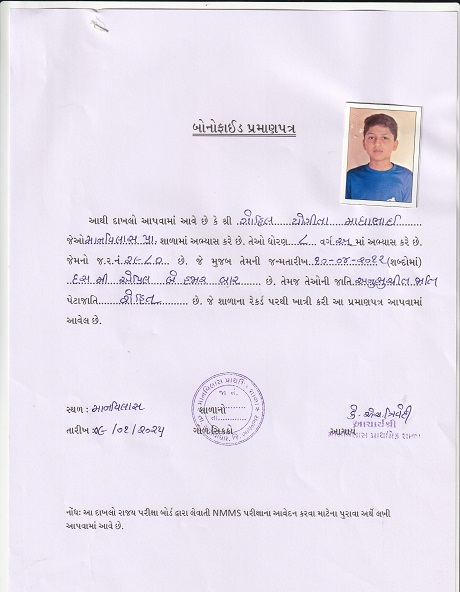 બોનોફાઈડ પ્રમાણપત્ર
આથી દાખલો આપવામાં આવે છે કે શ્રી રોહિત યોગીતા માધાભાઈ
જેઓ માનવિલાસ પ્રા. શાળામાં અભ્યાસ કરે છે. તેઓ ધોરણ ૮ વર્ગ અ માં અભ્યાસ કરે છે.
જેમનો જ.ર.નં ૨૯૮૦ છે. જે મુજબ તેમની જન્મતારીખ ૧૦-૦૪-૨૦૧૨ (શબ્દોમાં)
દસ મી એપ્રિલ બે હજાર બાર છે. તેમજ તેઓની જાતિ અનુસુચીત જાતિ
પેટાજાતિ રોહિત છે. જે શાળાના રેકર્ડ પરથી ખાત્રી કરી આ પ્રમાણપત્ર આપવામાં
આવેલ છે.
સ્થળ : માનવિલાસ શાળાનો
તારીખ ૨૯/૦૧/૨૦૨૫ ગોળ સિક્કો આચાર્ય
આચાર્યશ્રી
માનવિલાસ પ્રાથમિક શાળા
નોંધ: આ દાખલો રાજ્ય પરીક્ષા બોર્ડ દ્વારા લેવાતી NMMS પરીક્ષાના આવેદન કરવા માટેના પુરાવા અર્થે લખી
આપવામાં આવે છે.